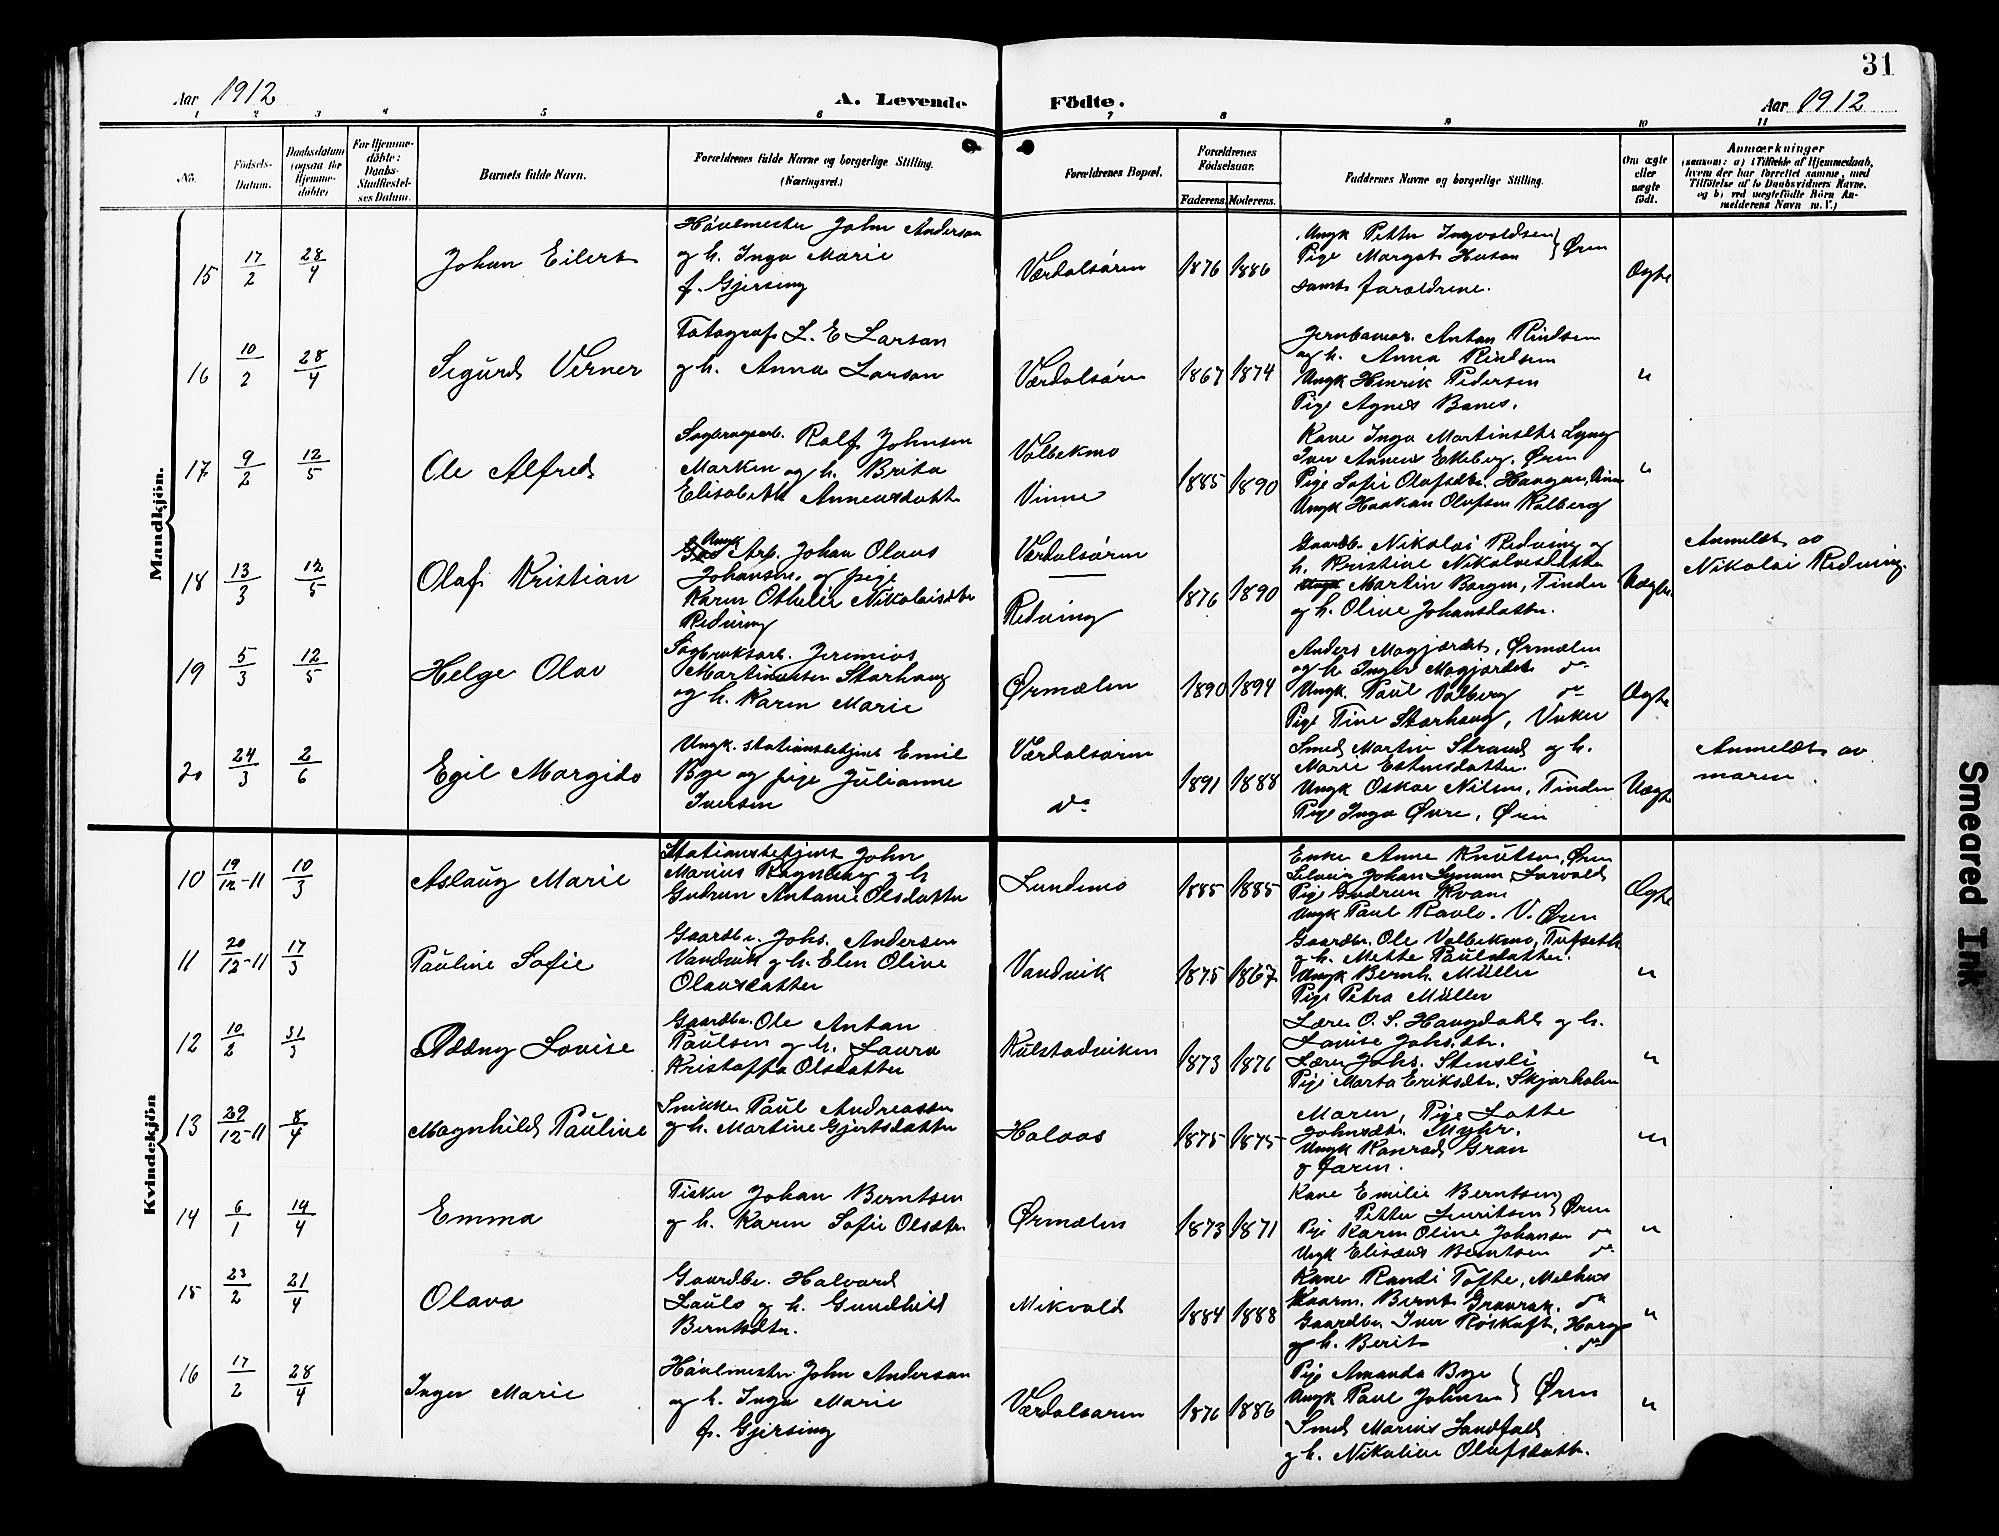 31
Aar 1912
A. Levende
Födte.
Aar 1912
1 2 3 4 5 6 7 8 9 10 11
No.
Födsels-
Datum.
Daabsdatum
(ogsaa for
Hjemme-
døbte)
For Hjemme-
døbte:
Daabs-
Stadfæstel-
ses Datum.
Barnets fulde Navn.
Forældrenes fulde Navne og borgerlige Stilling.
(Næringsvei.)
Forældrenes Bopæl.
Forældrenes
Fødselsaar.
Faderens. Moderens.
Faddernes Navne og borgerlige Stilling.
Om ægte
eller
uægte
født.
Anmærkninger
(saasom: a) i Tilfælde af Hjemmedaab,
hvem der har forrettet samme, med
Tilføielse af to Daabsvidners Navne,
og b) ved uægtefödte Börn An-
melderens Navn m. V.)
Mandkjön.
15 17/2 28/4 Johan Eilert
Hövlmester John Anderson
og h. Inga Marie
f. Gjersing
Værdalsøren 1876 1886
Ungk Petter Ingvaldsen } Øren
Pige Margot
samt forældrene.
Ægte
16 10/2 28/4 Sigurd Verner
Fotograf L. E Larson
og h. Anna Larson
Værdalsøren 1867 1874
Anton Rindsem
og h. Anna Rindsem
Ungk Henrik Pedersen
Pige Agnes Banes.
"
17 9/2 12/5 Ole Alfred
Sagbrugsarb. Rolf Johnsen
Marken og h. Brita
Elisabeth Anneusdatter
Volbekmo
Vinne
1885 1890
Kone Inga Martinsdtr Lyng
Iver Anneus Ekleberg, Øren
Pige Sofie Olafsdtr. Haugan, Vinne
Ungk Haakon Olafsen Kalberg
"
18 13/3 12/5 Olaf Kristian
Ungk
Arb. Johan Olaus
Johansen, og pige
Karen Othelie Nikolaisdtr
Redning
Værdalsøren
Redning
1876 1890
Gaardb. Nikolai Redning og
h. Kristine
Martin Borgen, Tinden
og h. Oline Johansdatter.
Uægte
Anmeldt av
Nikolai Redning.
19 5/3 12/5 Helge Olav
Sagbruksarb. Jeremias
Martinussen Storhaug
og h. Karen Marie
Ørmælen 1890 1894
Anders Mogjærdet, Ørmælen
og h. Inger Mogjærdet do
Ungk. Paul Valberg do
Pige Tine Storhaug, Vuku
Ægte
20 24/3 2/6 Egil Morgido
Ungk. stationsbetjent Emil
Bye og pige Julianne
Iversen
Værdalsøren
do
1891 1888
Smed Martin Strand og h.
Marie Estensdatter.
Ungk Oskar Nilsen, Tinden
Pige Inga Øvre, Øren
Uægte
Anmeldt av
moren.
Kvindekjön
10 19/12-11 10/3 Aslaug Marie
Stationsbetjent John
Marius Rognhaug og h
Gudrun Antonie Olsdatter
Lundemo 1885 1885
Enke Anne Knutsen, Øren
Johan
Pige Gudrun Kvam
Ungk Paul Ravlo. V. Øren
Ægte
11 20/12-11 17/3 Pauline Sofie
Gaardbr. Johs. Andersen
Vandvik og h. Elen Oline
Olausdatter
Vandvik 1875 1867
Gaardbr. Ole Volbekmo, Tufseth
og h. Mette Paulsdatter.
Ungk Bernh. Müller
Pige Petra Müller
"
12 10/2 31/3 Oddny Lovise
Gaardbr. Ole Anton
Paulsen og h. Laura
Kristoffa Olsdatter
Kulstadviken 1873 1876
Lærer O. S. Haugdahl og h.
Lovise Johsdtr.
Lærer Johs. Stensli
Pige Marta Eriksdtr. Skjørholm
"
13 29/12-11 8/4 Magnhild Pauline
Snikker Paul Andreassen
og h. Martine Gjertsdatter
Holaas 1875 1875
Moren, Pige Lotte
Johnsdtr. Myhr.
Ungk Konrad Gran
og faren.
"
14 6/1 14/4 Emma
Fisker Johan Berntsen
og h. Karen Sofie Olsdtr
Ørmælen 1873 1871
Kone Emilie Berntsen } Øren
Petter Lauritsen
Pige Karen Oline Johansen do
Ungk Elisæus Berntsen do
"
15 23/2 21/4 Olava
Gaardbr. Halvard
Laulo og h. Gundhild
Berntsdtr.
Mikvold 1884 1888
Kone Randi Tofte, Melhus
Bernt Gravrak. do
Gaardbr. Iver Røskaft, Horg
og h. Berit do
"
16 17/2 28/4 Inger Marie
Hövlmester John Anderson
og h. Inga Marie
f. Gjersing
Værdalsøren 1876 1886
Pige Amanda Bye
Ungk Paul Johnsen } Øren
Smed Marius Sandfald
og h. Nikoline Olafsdatter.
"
Smeared Ink